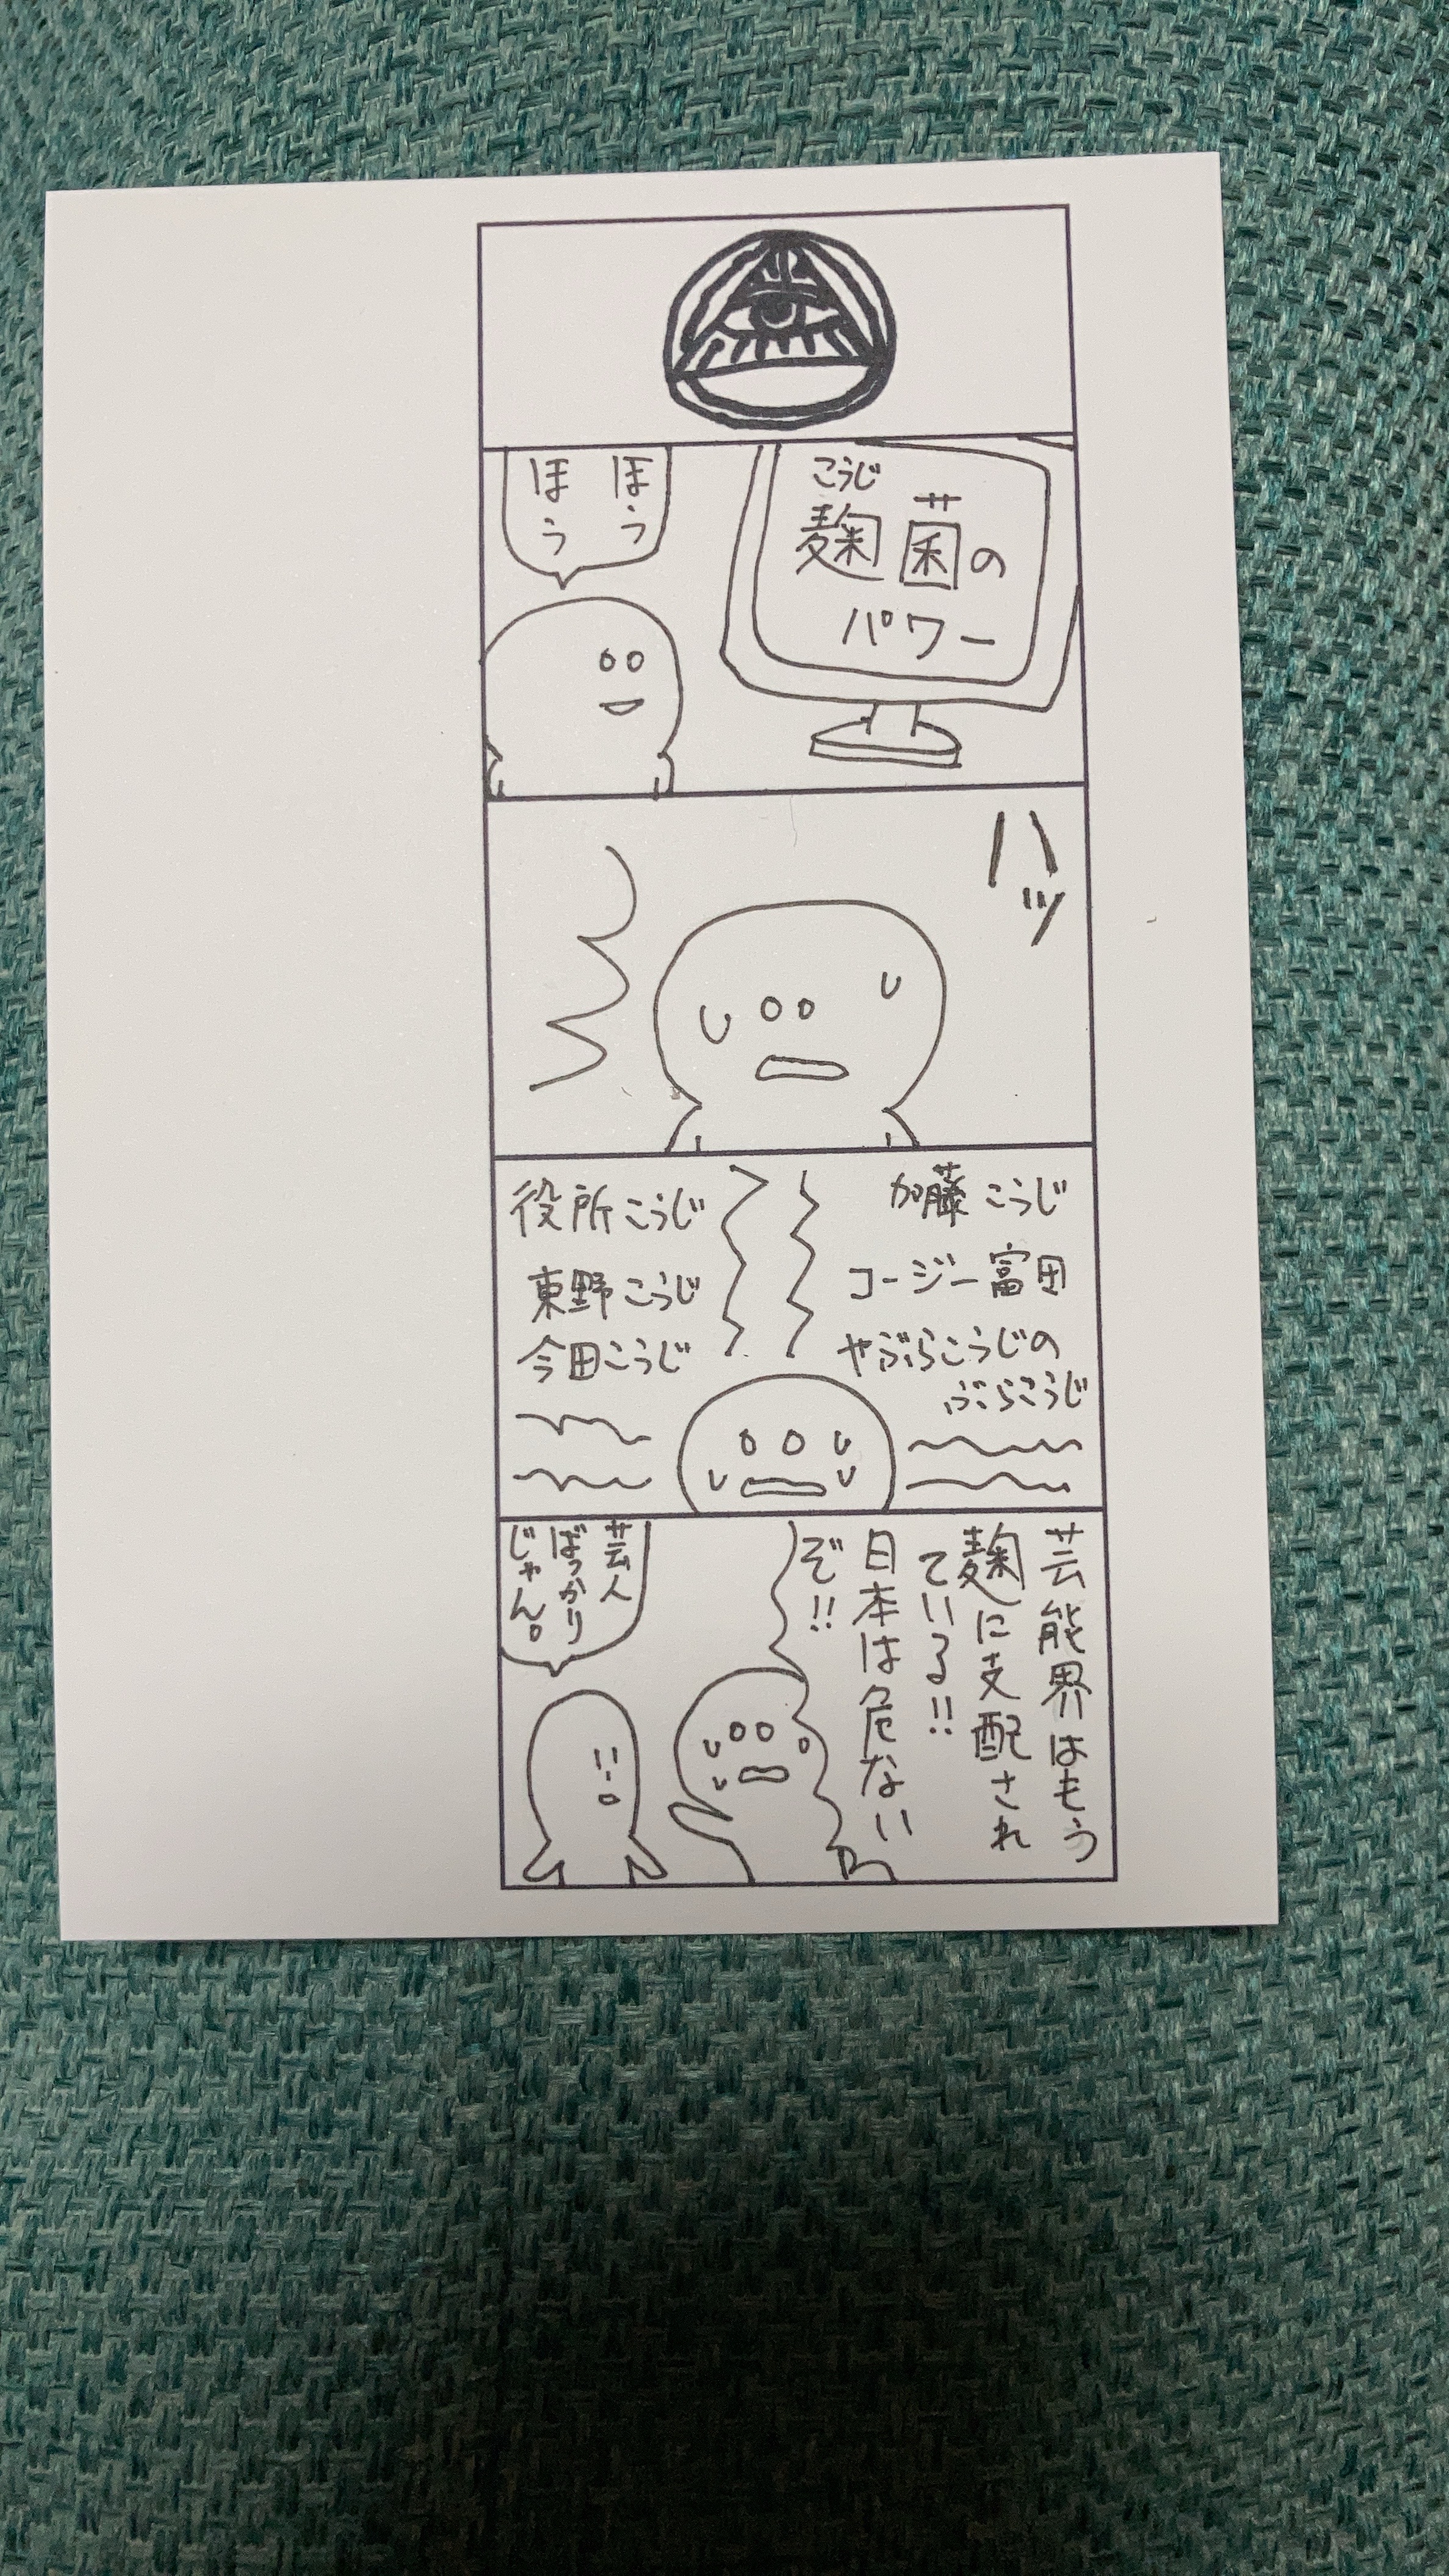 こうじ
麹菌の
パワー
ほう
ほう
ハッ
加藤こうじ
コージー富田
やぶらこうじの
ぶらこうじ
役所こうじ
東野こうじ
今田こうじ
芸能界はもう
麹に支配され
ている!!
日本は危ない
ぞ!!
芸人
ばっかり
じゃん。